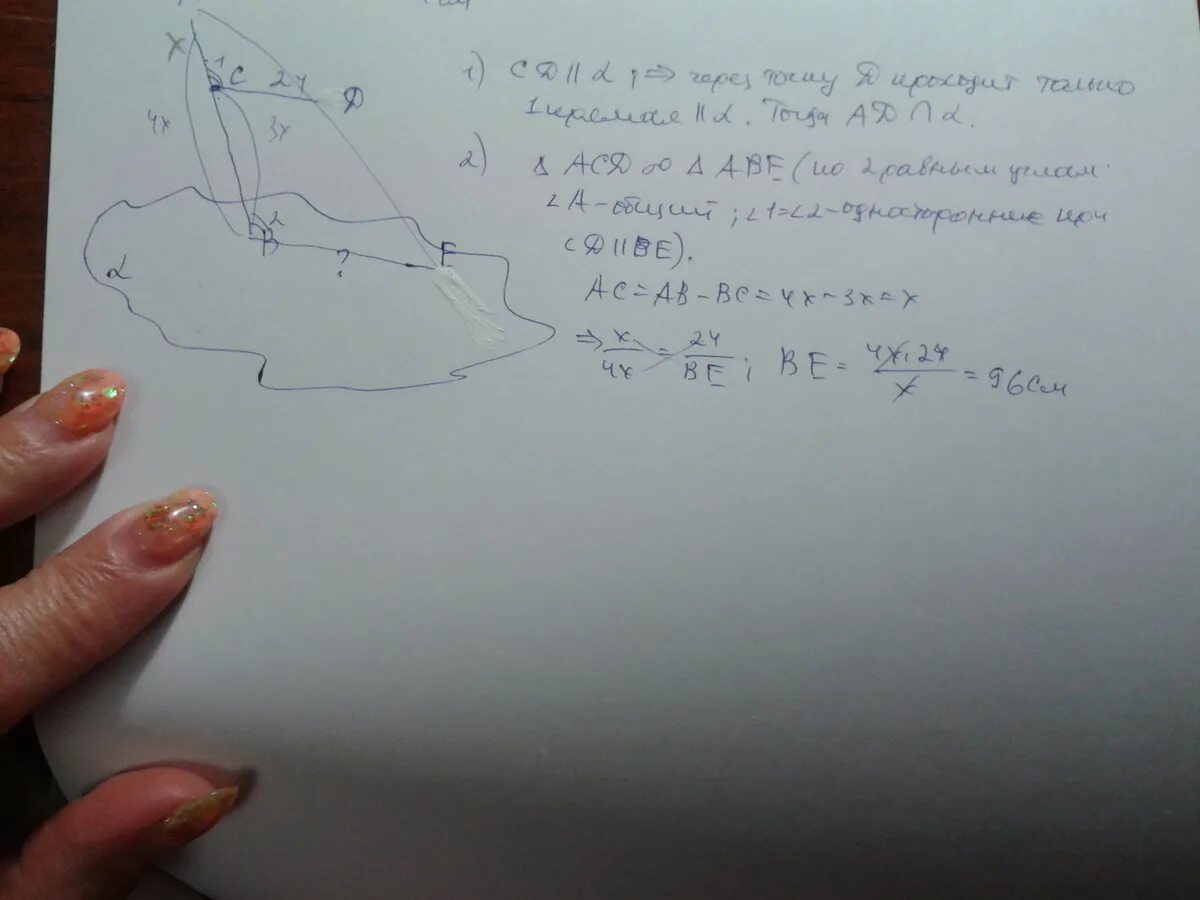 1) CD || α ; ⇒ через точку D проходит только
1 прямая || α. Тогда AD ∩ α.
2) Δ ACD ∞ Δ ABE (по 2 равным углам
∠A - общий ; ∠1 = ∠2 - односторонние при
CD || BE).
AC = AB - BC = 4x - 3x = x
⇒ x/4x = 24/BE ; BE = 4x·24/x = 96 см
x
1
C
24
D
4x
3x
2
B
?
E
α